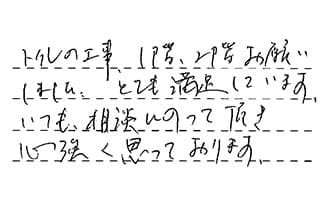 トイレの工事、1階、2階お願い
しました。とても満足しています。
いつも、相談にのって頂き
心強く思っております。